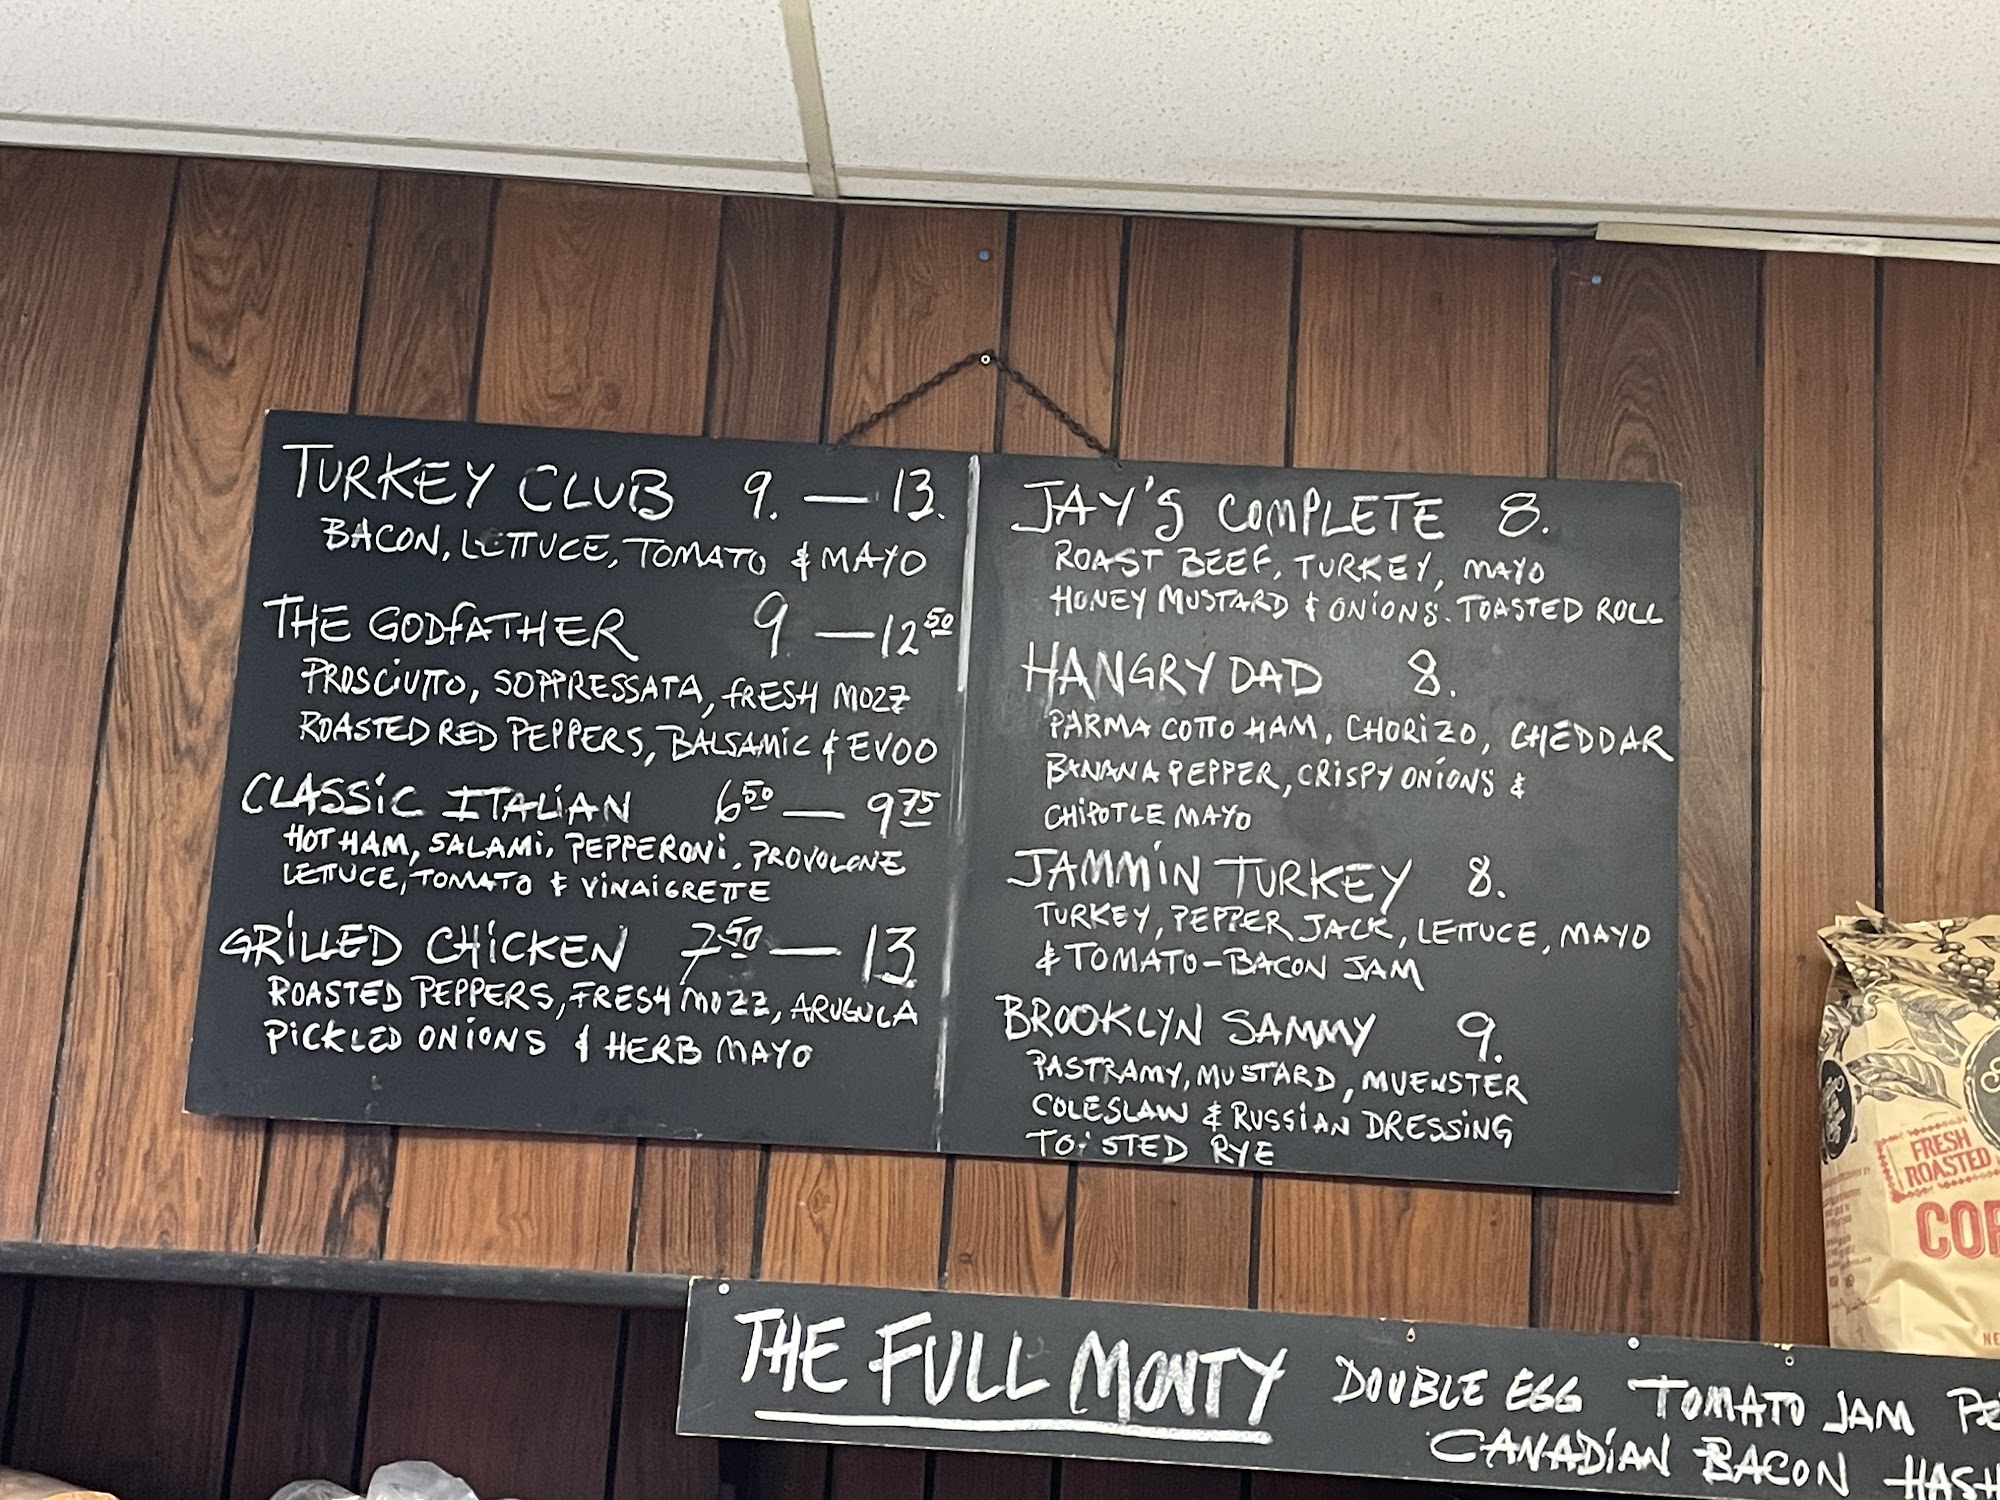 TURKEY CLUB 9. — 13.
BACON, LETTUCE, TOMATO & MAYO
THE GODFATHER 9. — 12 50
PROSCIUTTO, SOPPRESSATA, FRESH MOZZ
ROASTED RED PEPPERS, BALSAMIC & EVOO
CLASSIC ITALIAN 6 50 — 9 75
HOT HAM, SALAMI, PEPPERONI, PROVOLONE
LETTUCE, TOMATO & VINAIGRETTE
GRILLED CHICKEN 7 50 — 13.
ROASTED PEPPERS, FRESH MOZZ, ARUGULA
PICKLED ONIONS & HERB MAYO
JAY'S COMPLETE 8.
ROAST BEEF, TURKEY, MAYO
HONEY MUSTARD & ONIONS. TOASTED ROLL
HANGRY DAD 8.
PARMA COTTO HAM, CHORIZO, CHEDDAR
BANANA PEPPER, CRISPY ONIONS &
CHIPOTLE MAYO
JAMMIN TURKEY 8.
TURKEY, PEPPER JACK, LETTUCE, MAYO
& TOMATO-BACON JAM
BROOKLYN SAMMY 9.
PASTRAMY, MUSTARD, MUENSTER
COLESLAW & RUSSIAN DRESSING
TOASTED RYE
FRESH
ROASTED
THE FULL MONTY DOUBLE EGG TOMATO JAM
CANADIAN BACON HASH